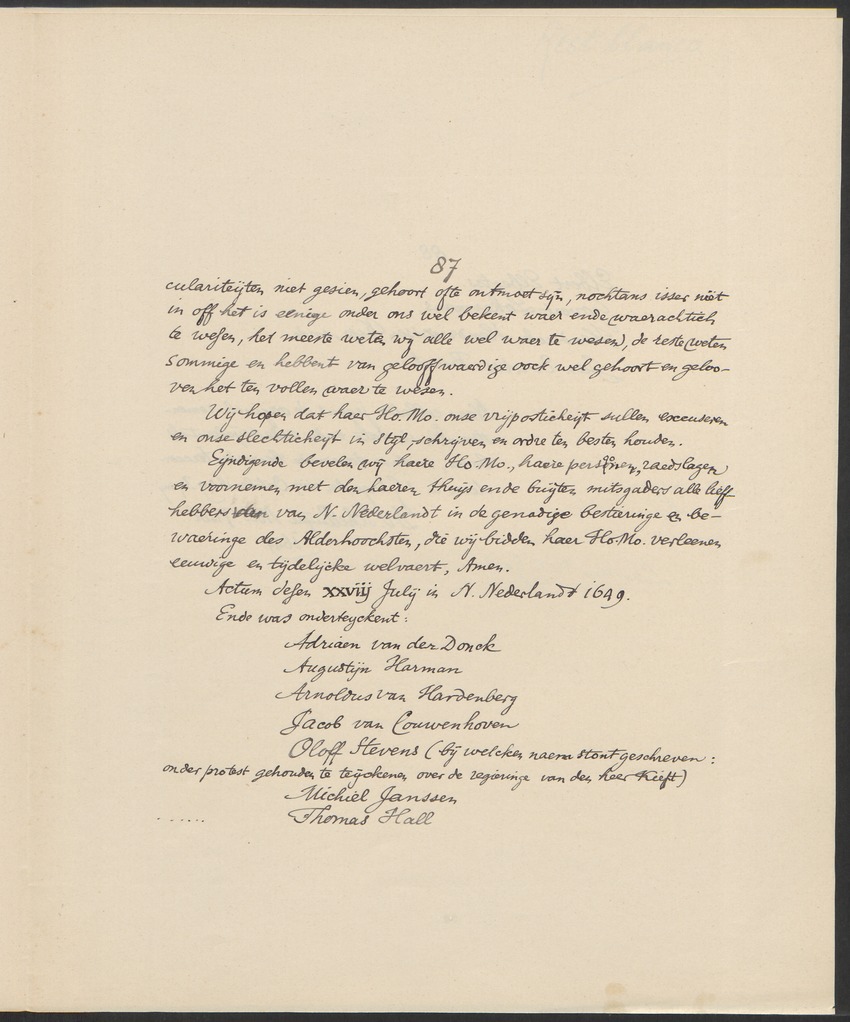 87
culariteijten niet gesien, gehoort ofte ontmoet sijn, nochtans isser niet
in off het is eenige onder ons wel bekent waer ende waerachtich
te wesen, het meeste weten wij alle wel waer te wesen, de reste weten
sommige en hebbent van gelooffwaerdige oock wel gehoort en geloo-
ven het ten vollen waer te wesen.
Wij hopen dat haer Ho. Mo. onse vrijposticheijt sullen excuseren
en onse slechticheijt in stijl, schrijven en ordre ten besten houden.
Eijndigende bevelen wij haere Ho. Mo., haere personen, raedslagen
en voornemen met den haeren thuijs ende buijten mitsgaders alle lieff
hebbers van N. Nederlandt in de genadige bestieringe en be-
waeringe des Alderhoochsten, die wij bidden haer Ho. Mo. verleenen
eeuwige en tijdelijcke welvaert, Amen.
Actum desen xxviij Julij in N. Nederlandt 1649.
Ende was onderteyckent:
Adriaen van der Donck
Augustijn Harman
Arnoldus van Hardenberg
Jacob van Couwenhoven
Oloff Stevens (bij welcken naem stont geschreven:
onder protest gehouden te teijckenen over de regieringe van den heer Kieft)
Michiel Janssen
...... Thomas Hall